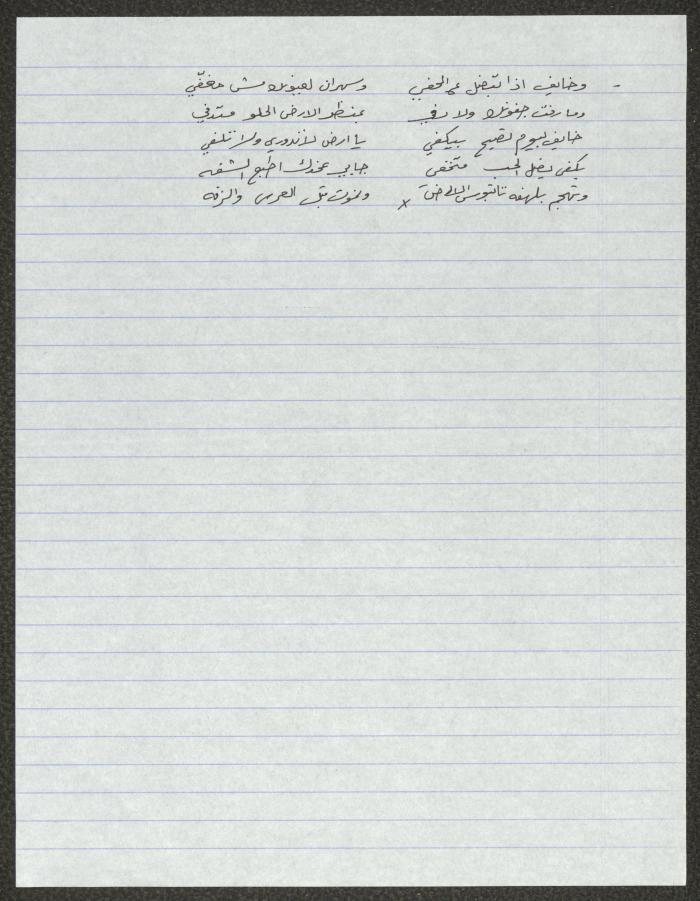 - وخايف اذا تبضل عم تخفي وسهران لعيونك مش مغفّي
وما رفت جفونك ولا رفي بمنظر الارض الحلو متدفي
خايف ليوم تصيح بيكفي يا ارض لا تدوري ولا تلفي
بكفي يضل الحب متخفى جايي عخدك اطبع الشفه
وتهجم بلهفه تا تبوس الارض ونموت قبل العرس والزفه
x